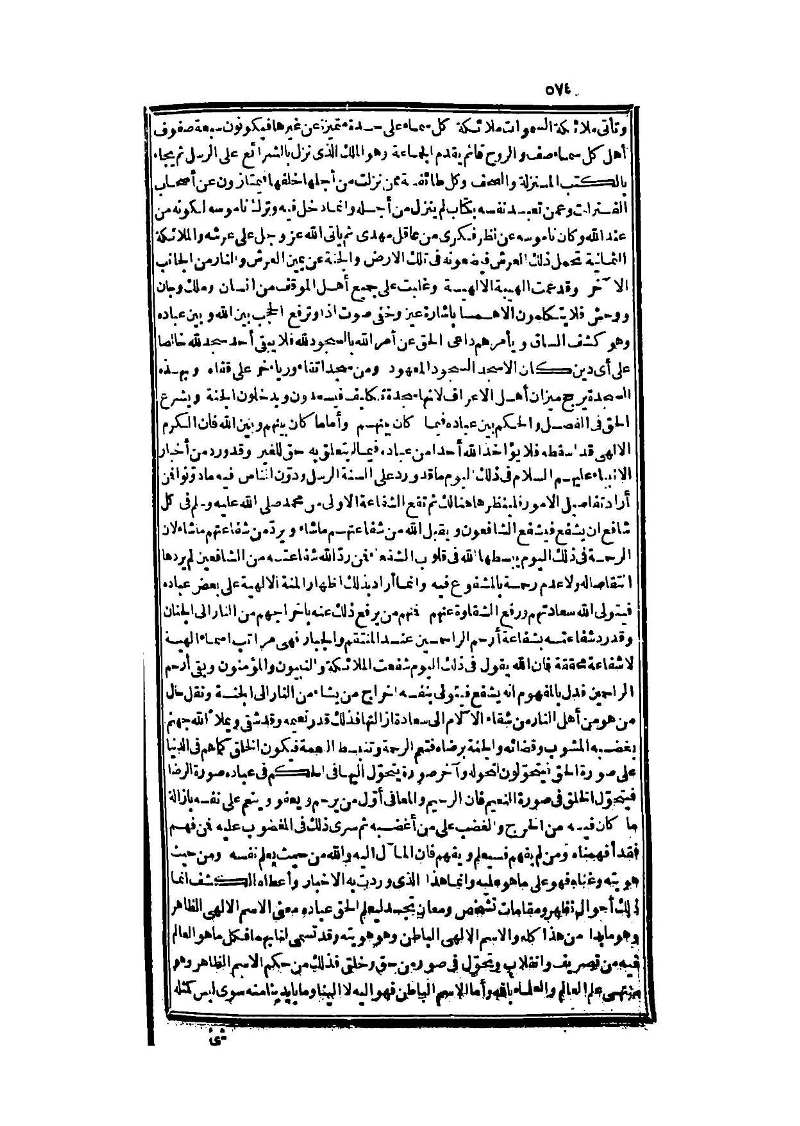 ٥٧٤
وتأتى ملائكة السموات ملائكة كل سماء على حدة متميزة عن غيرها فيكونون سبعة صفوف
أهل كل سماء صف والروح قائم يقدم الجماعة وهو الملك الذى نزل بالشرائع على الرسل ثم يجاء
بالكتب المنزلة والصحف وكل طائفة ممن نزلت من أجلها خلفها فيمتازون عن أصحاب
الفترات وعمن تعبد نفسه بكتاب لم ينزل من أجله وانما دخل فيه وترك ناموسه لكونه من
عند الله وكان ناموسه عن نظر فكرى من عاقل مهدى ثم يأتى الله عز وجل على عرشه والملائكة
الثمانية تحمل ذلك العرش فيضعونه فى تلك الارض والجنة عن يمين العرش والنار من الجانب
الآخر وقد عمت الهيبة الالهية وغلبت على جميع أهل الموقف من انسان وملك وجان
ووحش فلا يتكلمون الا همسا باشارة عين وخفى صوت اذا وترفع الحجب بين الله وبين عباده
وهو كشف الساق ويأمرهم داعى الحق عن أمر الله بالسجود لله فلا يبقى أحد سجد لله خالصا
على أى دين كان الا سجد السجود المعهود ومن سجد اتقاء ورياء خر على قفاه وبهذه
السجدة يرجح ميزان أهل الاعراف لانها سجدة تكليف فيسعدون ويدخلون الجنة ويشرع
الحق فى الفصل والحكم بين عباده فيما كان بينهم وأما ما كان بينهم وبين الله فان الكرم
الالهى قد اسقطه فلا يؤاخذ الله أحدا من عباده فيما لم يتعلق به حق للغير وقد ورد من أخبار
الانبياء عليهم السلام فى ذلك اليوم ما قد ورد على ألسنة الرسل ودوّن الناس فيه ما دوّنوا فمن
أراد تفاصيل الامور فلينظرها هنالك ثم تقع الشفاعة الاولى من محمد صلى الله عليه وسلم فى كل
شافع ان يشفع فيشفع الشافعون ويقبل الله من شفاعتهم ما شاء ويردّ من شفاعتهم ما شاء لان
الرحمة فى ذلك اليوم يبسطها الله فى قلوب الشفعاء فمن ردّ الله شفاعته من الشافعين لم يردها
انتقاصا له ولا عدم رحمة بالمشفوع فيه وانما أراد بذلك اظهار المنة الالهية على بعض عباده
فيتولى الله سعادتهم ورفع الشقاوة عنهم فمنهم من يرفع ذلك عنه باخراجهم من النار الى الجنان
وقد ورد شفاعته بشفاعة أرحم الراحمين عند المنتقم والجبار فهى مراتب اسماء الهية
لا شفاعة محققة فان الله يقول فى ذلك اليوم شفعت الملائكة والنبيون والمؤمنون وبقى أرحم
الراحمين فدل بالمفهوم انه يشفع فيتولى بنفسه اخراج من يشاء من النار الى الجنة ونقل حال
من هو من أهل النار من شقاء الآلام الى سعادة ازالتها فذلك قدر نعيمه وقد شقى ويملأ الله جهنم
بغضبه المشوب وقضائه والجنة برضاه فتعم الرحمة وتنبسط النعمة فيكون الخلق كما هم فى الدنيا
على صورة الحق فيتحوّلون لتحوله وآخر صورة يتحوّل اليها فى الحكم فى عباده صورة الرضا
فيتحوّل الخلق فى صورة النعيم فان الرحيم والمعافى أول من يرحم ويعفو وينعم على نفسه بازالة
ما كان فيه من الحرج والغضب على من أغضبه ثم سرى ذلك فى المغضوب عليه فمن فهم
فقد أفهمناه ومن لم يفهم فسيعلم ويفهم فان المآل اليه والله من حيث يعلم نفسه ومن حيث
هويته وغناه فهو على ما هو عليه وانما هذا الذى وردت به الاخبار وأعطاه الكشف انما
ذلك أحوال تظهر ومقامات تشخص ومعان تجسد ليعلم الحق عباده معنى الاسم الالهى الظاهر
وهو ما بدا من هذا كله والاسم الالهى الباطن وهو هويته وقد تسمى لنا بهما فكل ما هو العالم
فيه من تصريف وانقلاب وتحوّل فى صور من حق وخلق فذلك من حكم الاسم الظاهر وهو
منتهى علم العالم والعلماء بالله وأما الاسم الباطن فهو اليه لا الينا وما بأيدينا منه سوى ليس كمثله
شئ